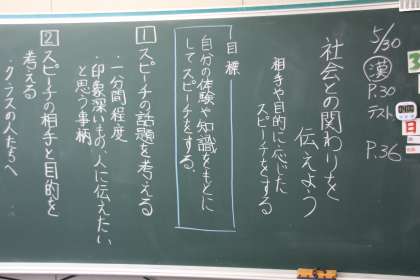 5/30
漢
P.30
テスト
P.36
社会との関わりを
伝えよう
相手や目的に応じた
スピーチをする
目標
自分の体験や知識をもとに
してスピーチをする。
1 スピーチの話題を考える
・一分間程度
・印象深いもの、人に伝えたい
と思う事柄
2 スピーチの相手と目的を
考える
・クラスの人たちへ